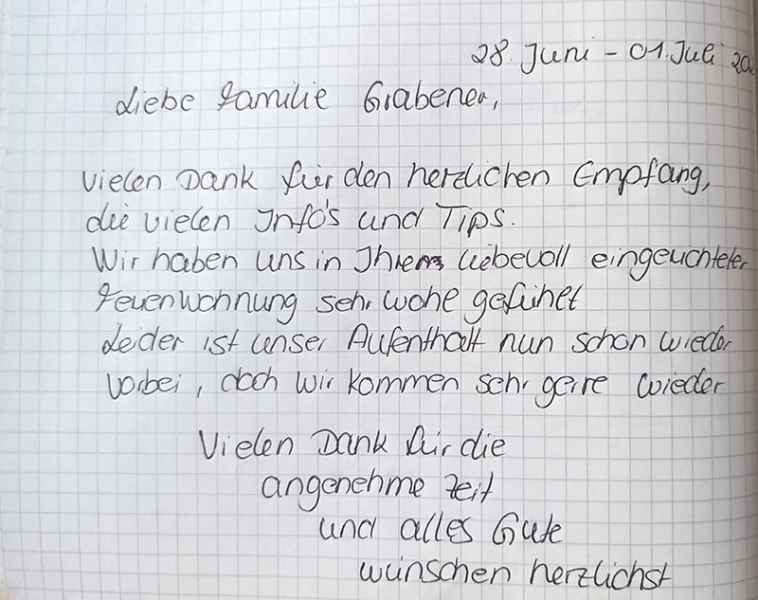 28. Juni - 01. Juli 20
Liebe Familie Grabener,
Vielen Dank für den herzlichen Empfang,
die vielen Info's und Tips.
Wir haben uns in Ihrem liebevoll eingerichteter
Ferienwohnung sehr wohl gefühlt
Leider ist unser Aufenthalt nun schon wieder
vorbei, doch wir kommen sehr gerne wieder
Vielen Dank für die
angenehme Zeit
und alles Gute
wünschen herzlichst